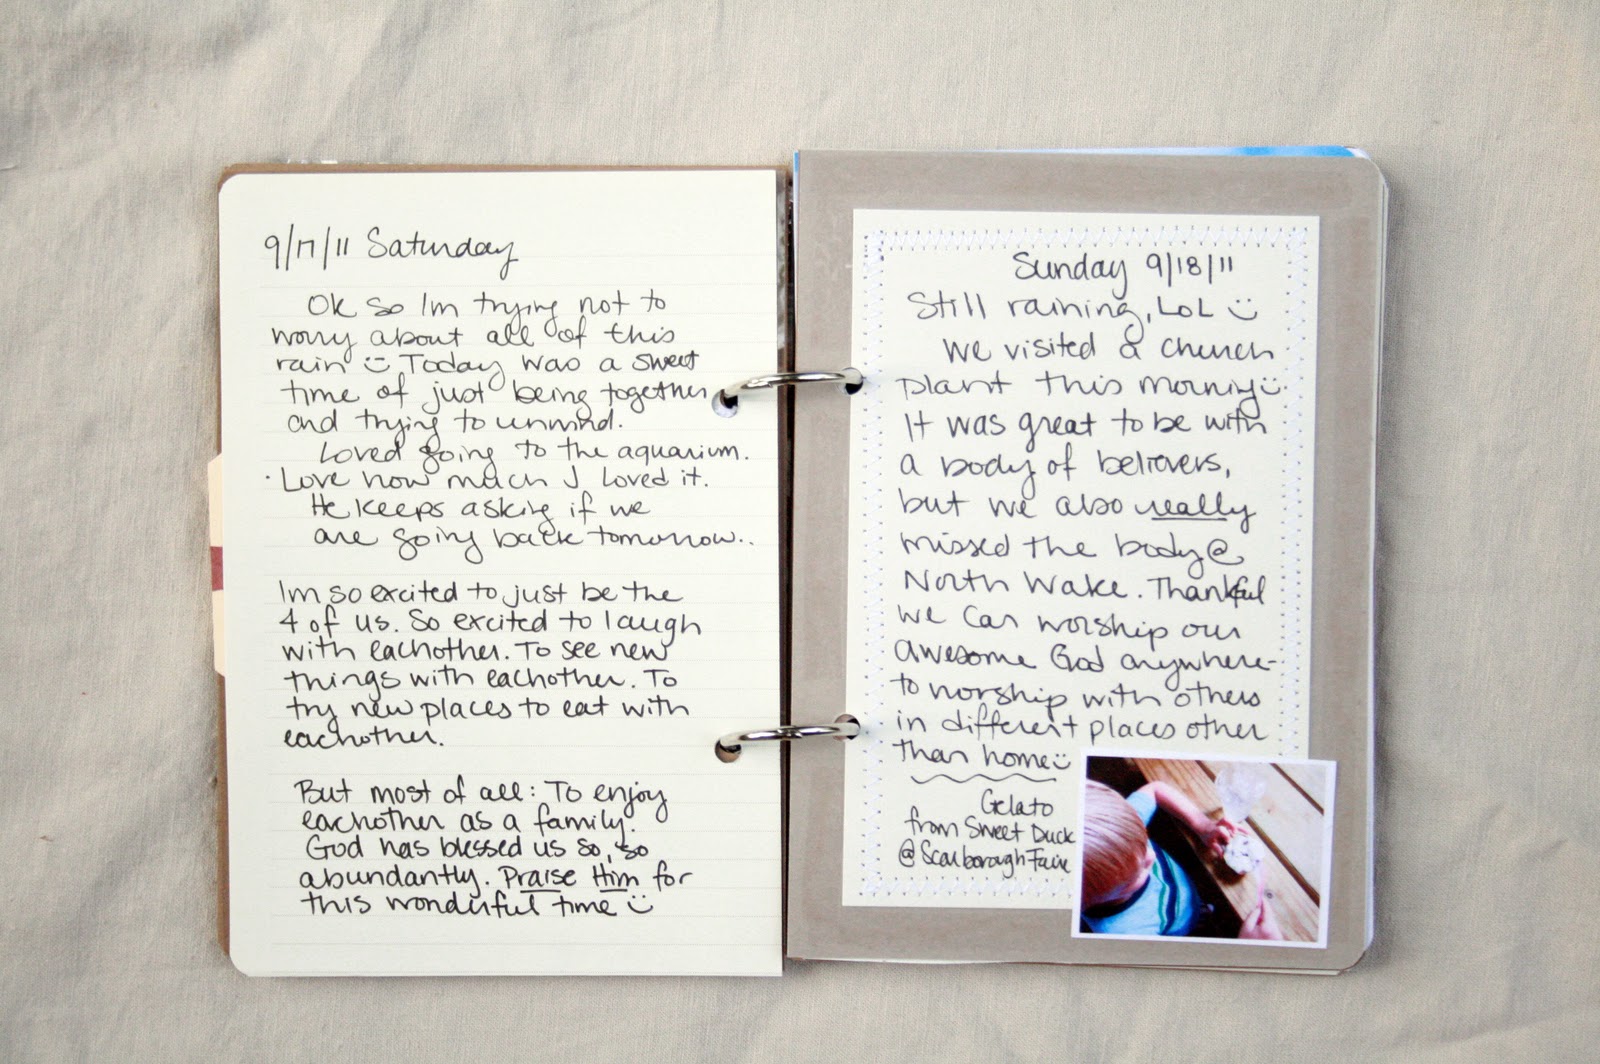 9/17/11 Saturday
Ok so Im trying not to
worry about all of this
rain :) Today was a sweet
time of just being together
and trying to unwind.
Loved going to the aquarium.
· Love how much J loved it.
He keeps asking if we
are going back tomorrow..
Im so excited to just be the
4 of us. So excited to laugh
with eachother. To see new
things with eachother. To
try new places to eat with
eachother.
But most of all: To enjoy
eachother as a family.
God has blessed us so, so
abundantly. Praise Him for
this wonderful time :)
Sunday 9/18/11
Still raining, LOL :)
We visited a church
plant this morning :)
It was great to be with
a body of believers,
but we also really
missed the body @
North Wake. Thankful
we can worship our
awesome God anywhere-
to worship with others
in different places other
than home :)
Gelato
from Sweet Duck
@ Scarborough Faire